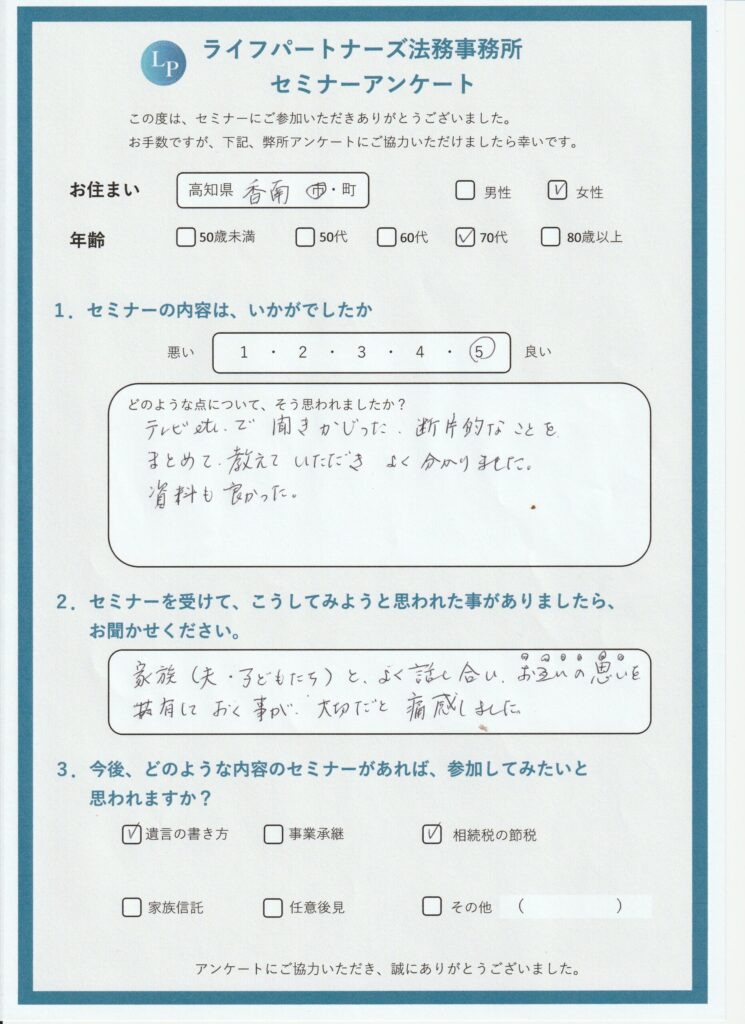 LP
ライフパートナーズ法務事務所
セミナーアンケート
この度は、セミナーにご参加いただきありがとうございました。
お手数ですが、下記、弊所アンケートにご協力いただけましたら幸いです。
お住まい 高知県 香南 市・町 男性 女性
年齢 50歳未満 50代 60代 70代 80歳以上
1．セミナーの内容は、いかがでしたか
悪い 1 ・ 2 ・ 3 ・ 4 ・ 5 良い
どのような点について、そう思われましたか？
テレビetc.で聞きかじった、断片的なことを
まとめて、教えていただきよく分かりました。
資料も良かった。
2．セミナーを受けて、こうしてみようと思われた事がありましたら、
お聞かせください。
家族（夫・子どもたち）と、よく話し合い、お互いの思いを
共有しておく事が、大切だと痛感しました。
3．今後、どのような内容のセミナーがあれば、参加してみたいと
思われますか？
遺言の書き方 事業承継 相続税の節税
家族信託 任意後見 その他 （ ）
アンケートにご協力いただき、誠にありがとうございました。